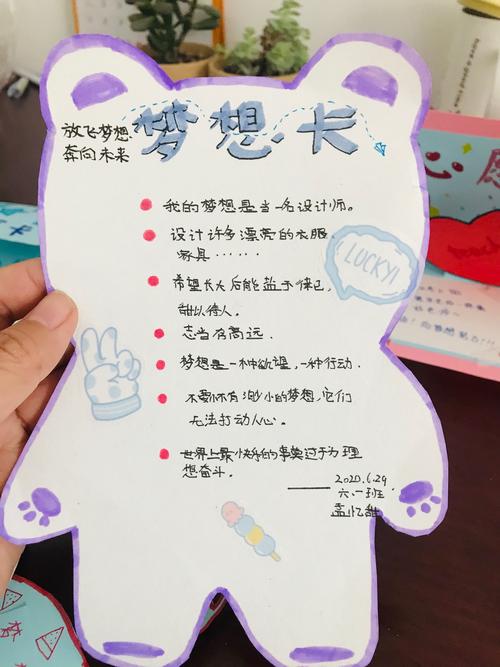 梦想卡
放飞梦想
奔向未来
我的梦想是当一名设计师。
设计许多漂亮的衣服
家具……
LUCKY!
希望长大后能盐于律己,
甜以待人.
志当存高远.
梦想是一种欲望,一种行动.
不要怀有渺小的梦想,它们
无法打动人心。
世界上最快乐的事莫过于为理
想奋斗.
——2020.6.29
六.一班.
孟忆
愿